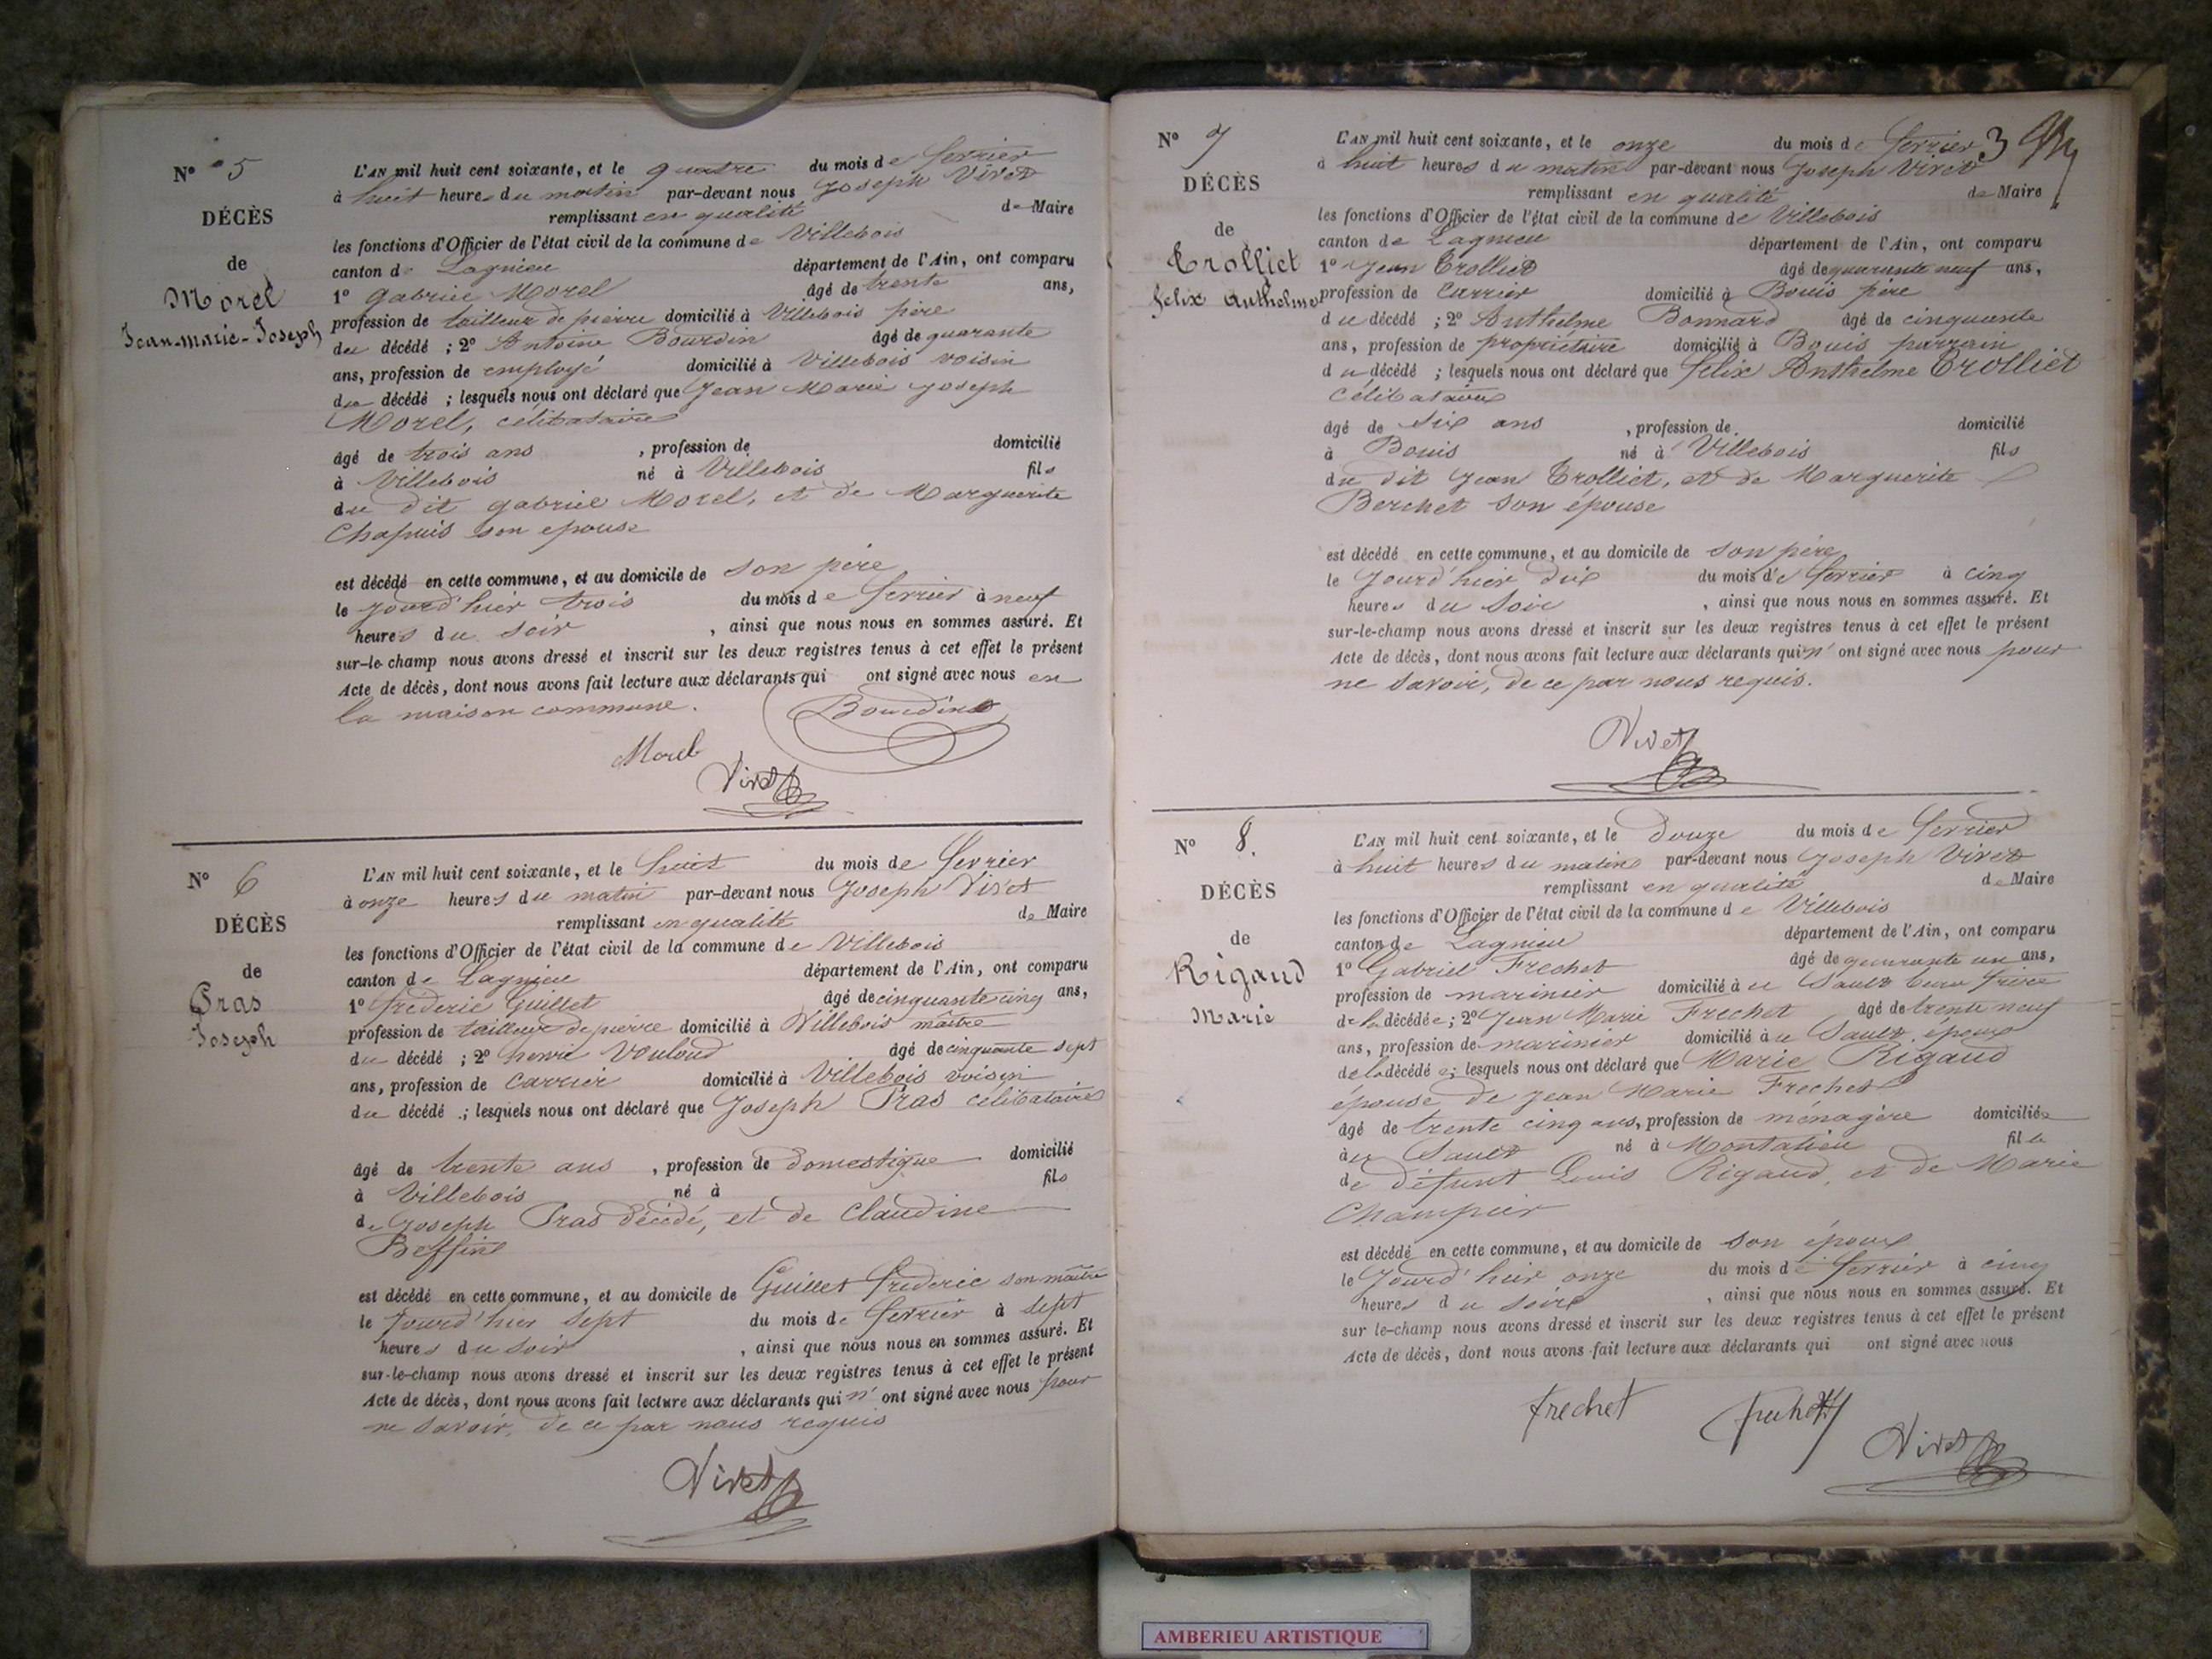 N° 5
DÉCÈS
de
Morel
Jean-marie-Joseph
L'AN mil huit cent soixante, et le quatre du mois de fevrier
à huit heures du matin par-devant nous Joseph Viret
remplissant en qualité de Maire
les fonctions d'Officier de l'état civil de la commune de Villebois
canton de Lagnieu département de l'Ain, ont comparu
1° gabriel Morel âgé de trente ans,
profession de tailleur de pierre domicilié à Villebois père
du décédé ; 2° Antoine Bourdin âgé de quarante
ans, profession de employé domicilié à Villebois voisin
du décédé ; lesquels nous ont déclaré que Jean Marie Joseph
Morel, célibataire
âgé de trois ans , profession de domicilié
à Villebois né à Villebois fils
du dit gabriel Morel, et de Marguerite
Chapuis son epouse
est décédé en cette commune, et au domicile de son père
le jourd'hier trois du mois de fevrier à neuf
heures du soir , ainsi que nous nous en sommes assuré. Et
sur-le-champ nous avons dressé et inscrit sur les deux registres tenus à cet effet le présent
Acte de décès, dont nous avons fait lecture aux déclarants qui ont signé avec nous en
la maison commune. Bourdin
Morel
Viret
N° 6
DÉCÈS
de
Pras
Joseph
L'AN mil huit cent soixante, et le huit du mois de fevrier
à onze heures du matin par-devant nous Joseph Viret
remplissant en qualité de Maire
les fonctions d'Officier de l'état civil de la commune de Villebois
canton de Lagnieu département de l'Ain, ont comparu
1° fréderic Guillet âgé de cinquante cinq ans,
profession de tailleur de pierre domicilié à Villebois maître
du décédé ; 2° henri Vouloud âgé de cinquante sept
ans, profession de carrier domicilié à Villebois voisin
du décédé ; lesquels nous ont déclaré que Joseph Pras célibataire
âgé de trente ans , profession de domestique domicilié
à Villebois né à fils
de Joseph Pras décédé, et de Claudine
Beffin
est décédé en cette commune, et au domicile de Guillet fréderic son maître
le jourd'hier sept du mois de fevrier à sept
heures du soir , ainsi que nous nous en sommes assuré. Et
sur-le-champ nous avons dressé et inscrit sur les deux registres tenus à cet effet le présent
Acte de décès, dont nous avons fait lecture aux déclarants qui n' ont signé avec nous pour
ne savoir, de ce par nous requis
Viret
N° 7
DÉCÈS
de
Trolliet
felix Anthelme
3
L'AN mil huit cent soixante, et le onze du mois de fevrier
à huit heures du matin par-devant nous Joseph Viret
remplissant en qualité de Maire
les fonctions d'Officier de l'état civil de la commune de Villebois
canton de Lagnieu département de l'Ain, ont comparu
1° Jean Trolliet âgé de quarante neuf ans,
profession de carrier domicilié à Bouis père
du décédé ; 2° Anthelme Bonnard âgé de cinquante
ans, profession de propriétaire domicilié à Bouis parrain
du décédé ; lesquels nous ont déclaré que felix Anthelme Trolliet
célibataire
âgé de six ans , profession de domicilié
à Bouis né à Villebois fils
du dit Jean Trolliet, et de Marguerite
Berchet son épouse
est décédé en cette commune, et au domicile de son père
le jourd'hier dix du mois de fevrier à cinq
heures du soir , ainsi que nous nous en sommes assuré. Et
sur-le-champ nous avons dressé et inscrit sur les deux registres tenus à cet effet le présent
Acte de décès, dont nous avons fait lecture aux déclarants qui n' ont signé avec nous pour
ne savoir, de ce par nous requis.
Viret
N° 8.
DÉCÈS
de
Rigaud
Marie
L'AN mil huit cent soixante, et le douze du mois de fevrier
à huit heures du matin par-devant nous Joseph Viret
remplissant en qualité de Maire
les fonctions d'Officier de l'état civil de la commune de Villebois
canton de Lagnieu département de l'Ain, ont comparu
1° Gabriel Frechet âgé de quarante un ans,
profession de marinier domicilié à u Sault beau frère
de la décédée ; 2° Jean Marie Frechet âgé de trente neuf
ans, profession de marinier domicilié à u Sault, époux
de la décédé e ; lesquels nous ont déclaré que Marie Rigaud
épouse de Jean Marie Frechet
âgé de trente cinq ans, profession de ménagère domiciliée
à u Sault né à Montalieu fille
de défunt Louis Rigaud, et de Marie
Champier
est décédé en cette commune, et au domicile de son époux
le jourd'hier onze du mois de fevrier à cinq
heures du soir , ainsi que nous nous en sommes assuré. Et
sur le-champ nous avons dressé et inscrit sur les deux registres tenus à cet effet le présent
Acte de décès, dont nous avons fait lecture aux déclarants qui ont signé avec nous
frechet frechet Viret
AMBERIEU ARTISTIQUE